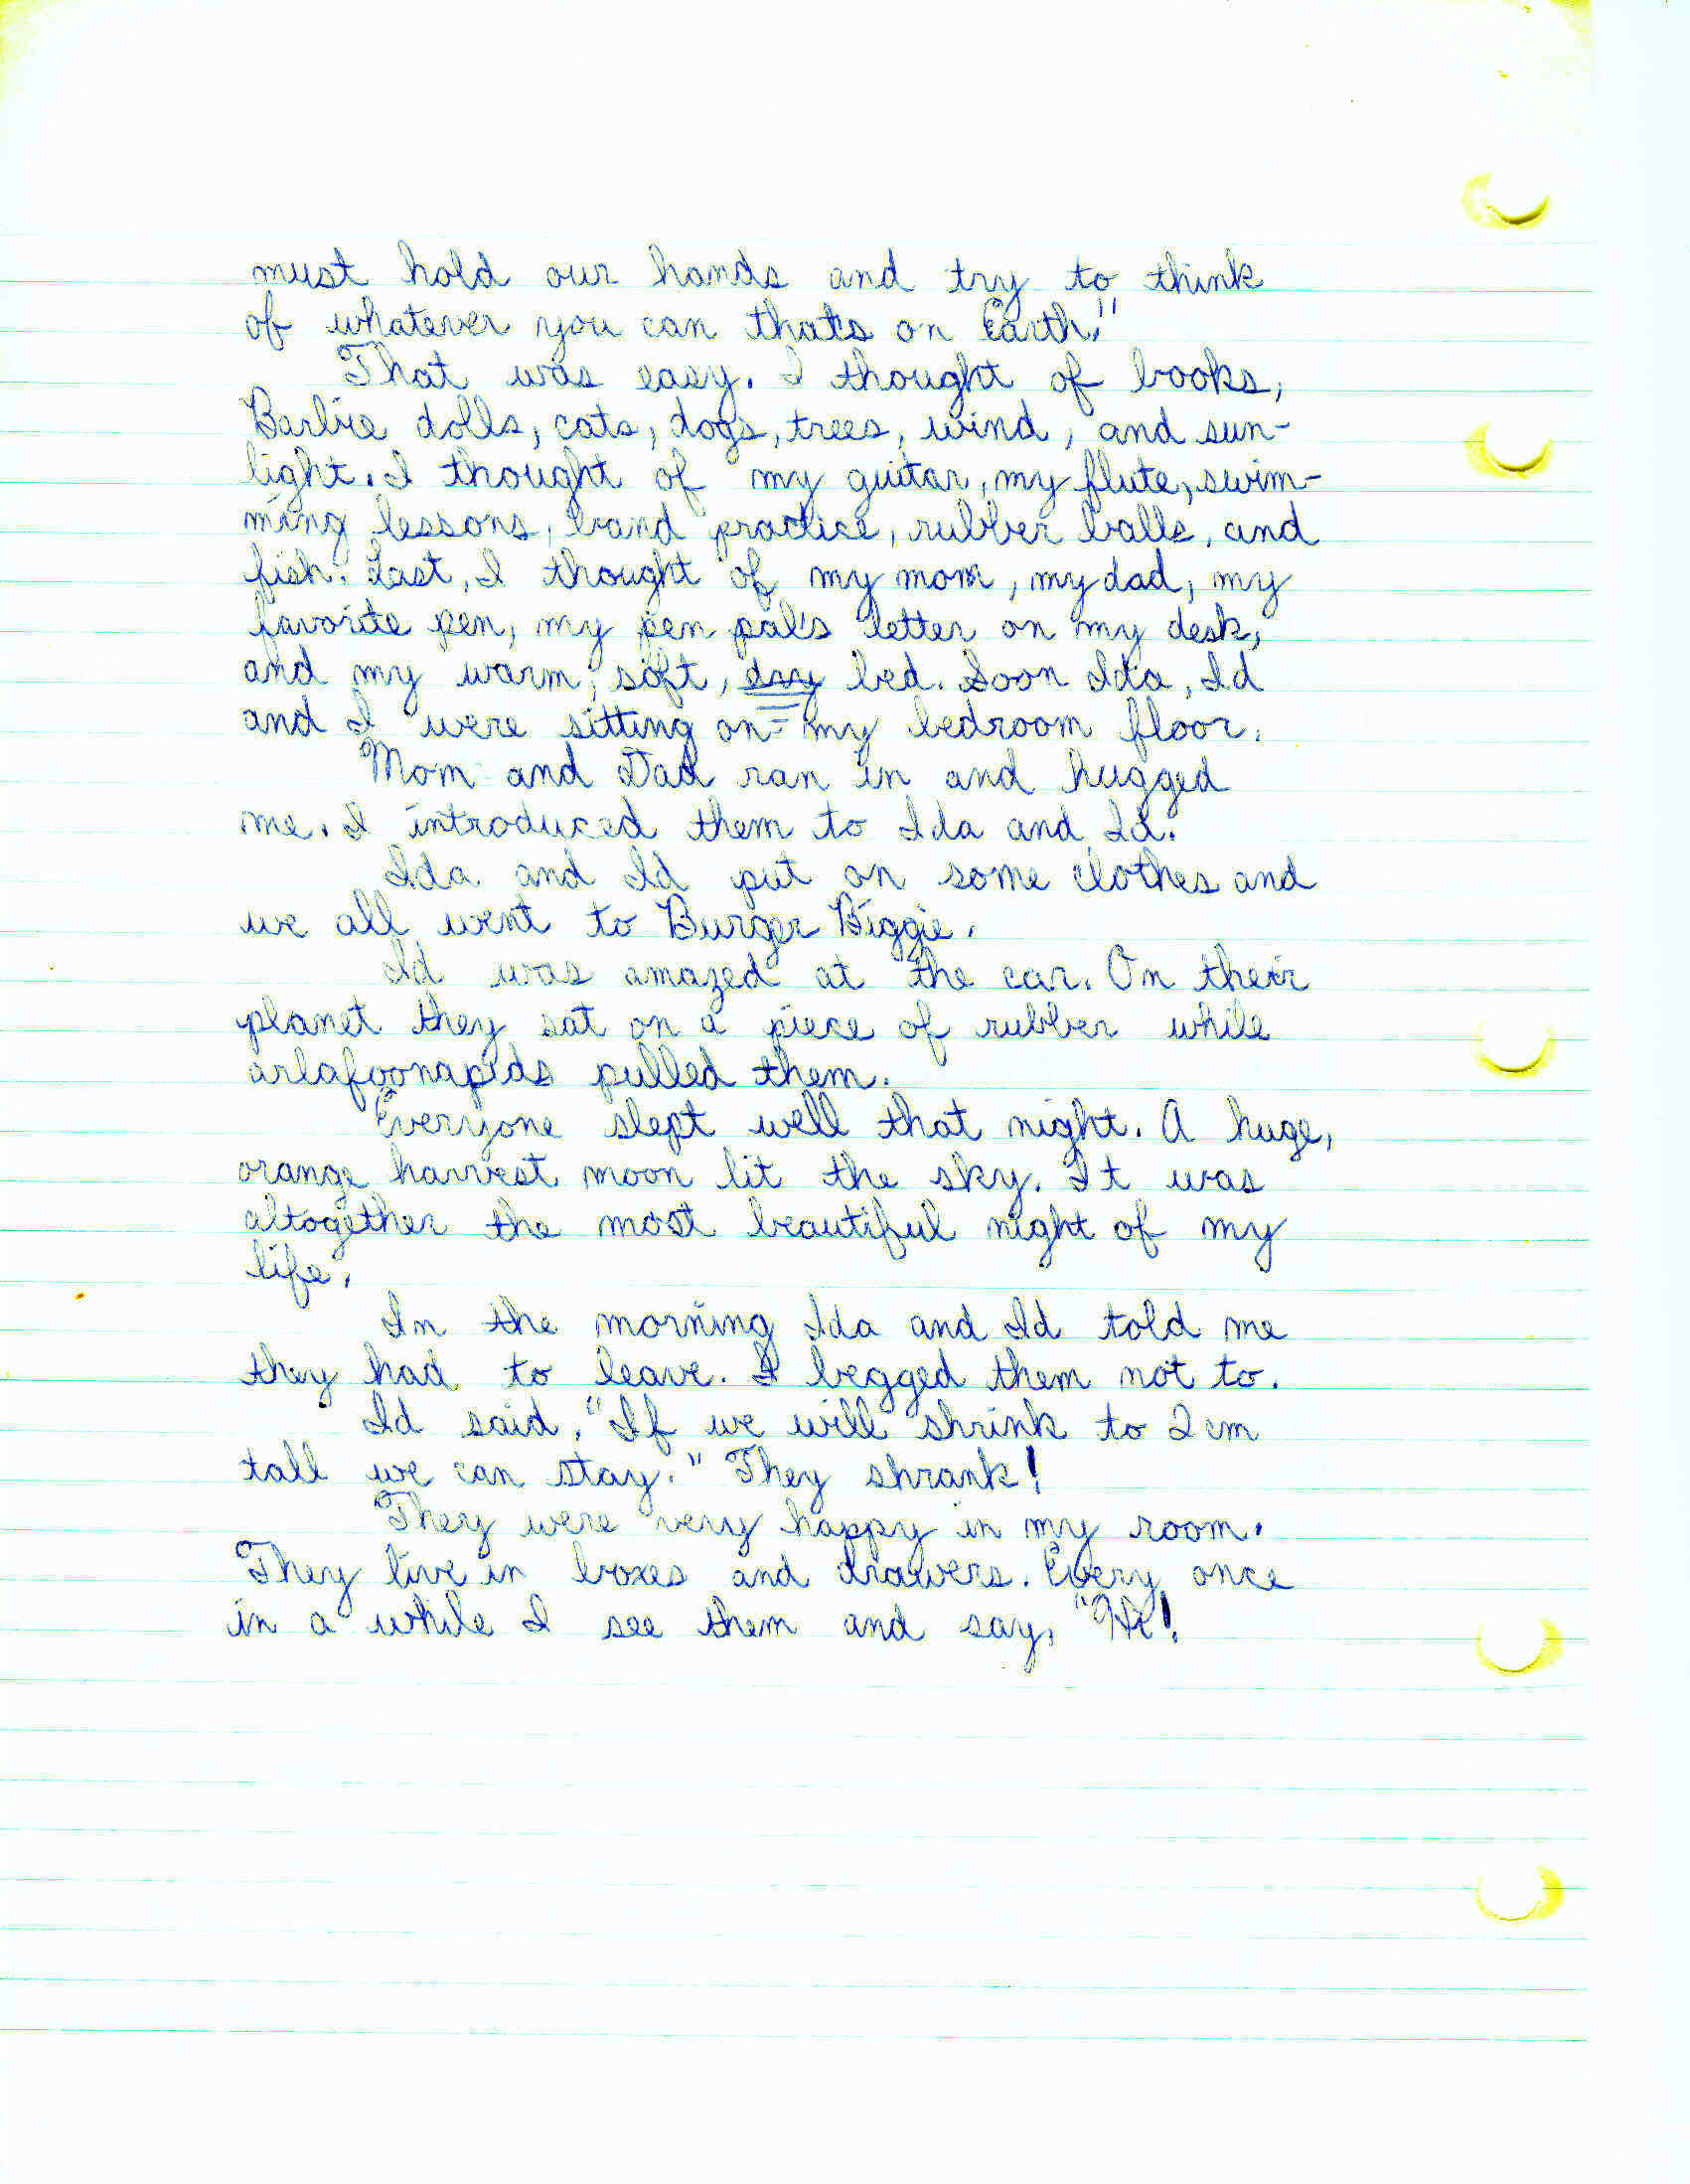 must hold our hands and try to think
of whatever you can that's on Earth."
That was easy. I thought of books,
Barbie dolls, cats, dogs, trees, wind, and sun-
light. I thought of my guitar, my flute, swim-
ming lessons, band practice, rubber balls, and
fish. Last, I thought of my mom, my dad, my
favorite pen, my pen pal's letter on my desk,
and my warm, soft, dry bed. Soon Ida, Id
and I were sitting on my bedroom floor.
Mom and Dad ran in and hugged
me. I introduced them to Ida and Id.
Ida and Id put on some clothes and
we all went to Burger Biggie.
Id was amazed at the car. On their
planet they sat on a piece of rubber while
arlafoonapids pulled them.
Everyone slept well that night. A huge,
orange harvest moon lit the sky. It was
altogether the most beautiful night of my
life.
In the morning Ida and Id told me
they had to leave. I begged them not to.
Id said, "If we will shrink to 2 cm
tall we can stay." They shrank!
They were very happy in my room.
They live in boxes and drawers. Every once
in a while I see them and say, "Hi!